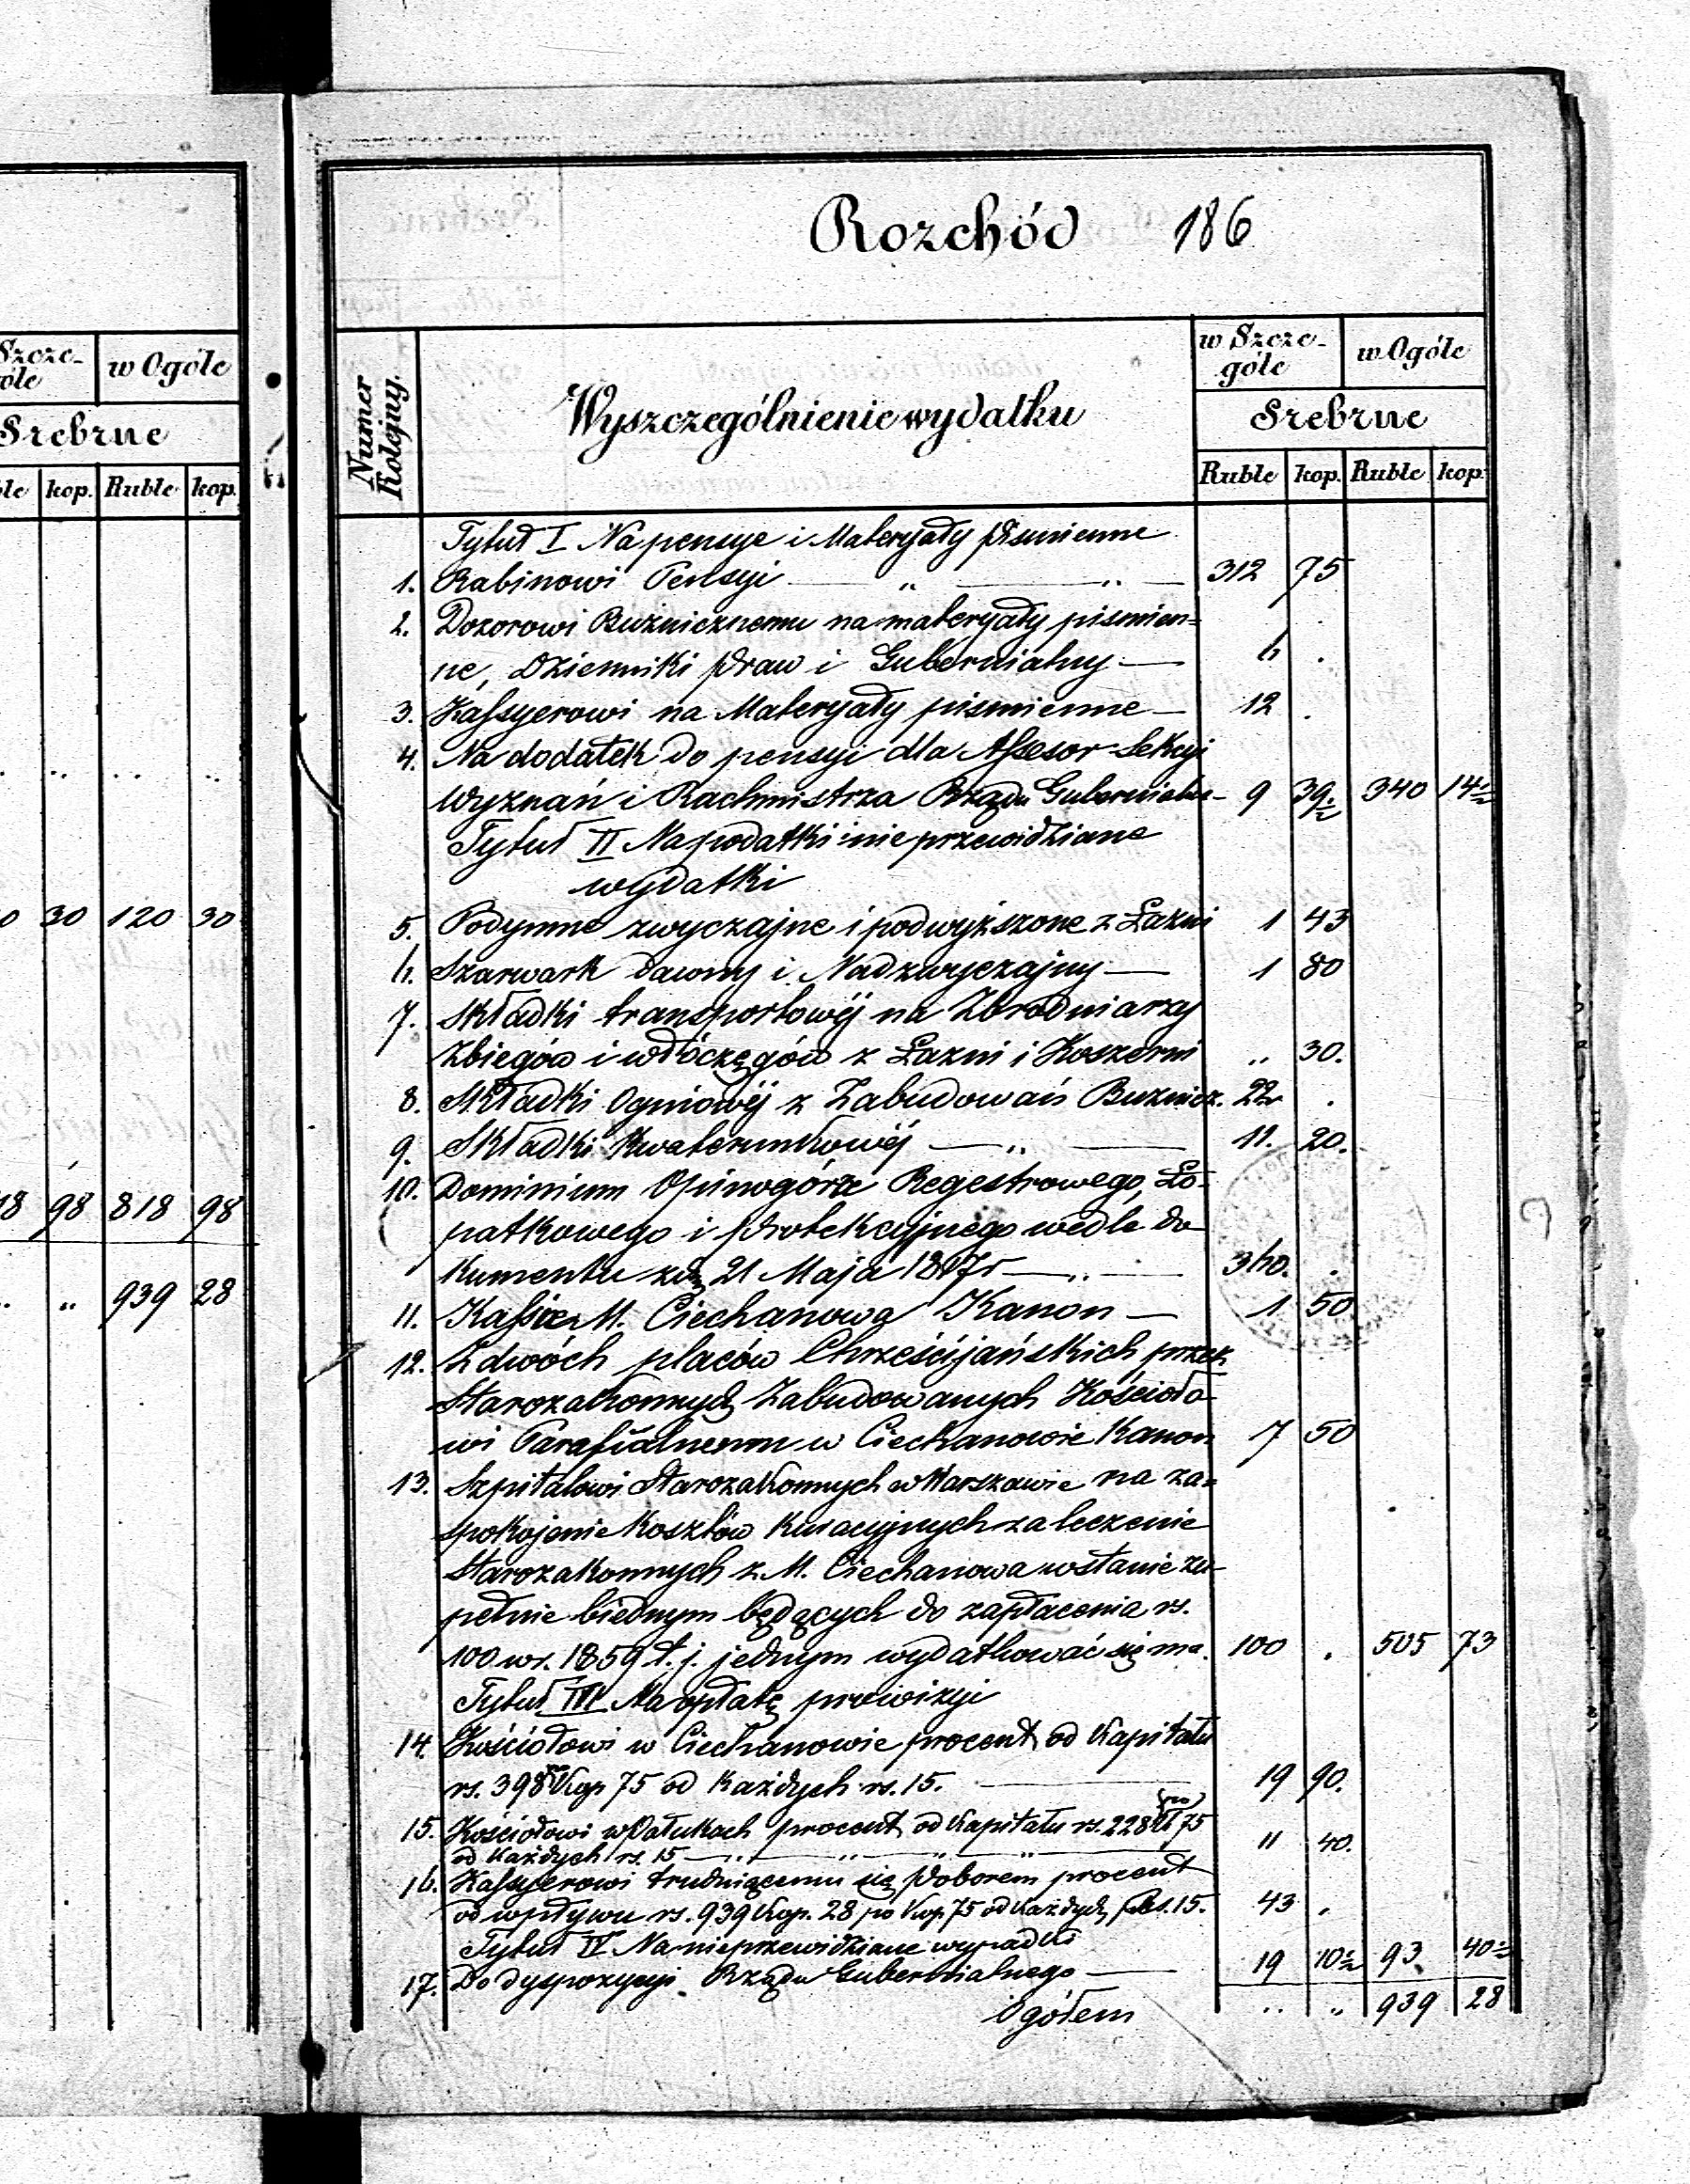 Szcze-
góle
w Ogóle
Srebrne
kop. Ruble kop.
30 120 30
18 98 818 98
.. „ 939 28
Rozchód 186
Numer Kolejny.
Wyszczególnienie wydatku
w Szcze-
góle
w Ogóle
Srebrne
Ruble kop. Ruble kop.
Tytuł I Na pensye i Materyały piśmienne
1. Rabinowi Pensyi — „ — „ — 312 75
2. Dozorowi Bużnicznemu na materyały piśmien=
ne, Dzienniki Praw i Gubernialny — 6 .
3. Kassyerowi na Materyały piśmienne — 12 .
4. Na dodatek do pensyi dla Assesor Sekcyi
Wyznań i Rachmistrza Rządu Gubernialn- 9 39½ 340 14½
Tytuł II Na podatki i nieprzewidziane
wydatki
5. Podymne zwyczajne i podwyższone z Łaźni 1 43
6. Szarwark dawny i Nadzwyczajny — 1 80
7. Składki transportowéj na Zbrodniarzy
Zbiegów i włóczęgów z Łazni i Koszerni „ 30.
8. Składki Ogniowéj z Zabudowań Buznicz. 22 .
9. Składki Kwaterunkowéj — „ — 11. 20.
10. Dominium Opinogórze Regestrowego, Ło-
patkowego i Protekcyjnego wedle do
kumentu z dn 21 Maja 1817r — „ — 360. .
11. Kassie M. Ciechanowa Kanon — 1 50
12. Z dwóch placów Chrześcijańskich przez
Starozakonnych Zabudowanych Kościoło
wi Parafialnemu w Ciechanowie Kanon 7 50
13. Szpitalowi Starozakonnych w Warszawie na za=
spokojenie Kosztów Kuracyjnych za leczenie
Starozakonnych z M. Ciechanowa w stanie zu-
pełnie biednym będących do zapłacenia rs.
100 w r. 1859 t. j. jednym wydatkować się ma. 100 . 505 73
Tytuł III Na opłatę prowizyi
14. Kościołowi w Ciechanowie procent od Kapitału
rs. 398 po Kop 75 od Każdych rs. 15. — 19 90.
15. Kościołowi w Pałukach procent od Kapitału rs. 228 (po) K 75
od Każdych rs. 15 — „ — „ — „ — „ — 11 40.
16. Kassyerowi trudniącemu się Poborem procent
od wpływu rs. 939 Kop. 28 po Kop. 75 od Każdych Rs. 15. 43 .
Tytuł IV Na nieprzewidziane wypadki
17. Do dyspozycyi Rządu Gubernialnego — 19 10½ 93 40½
Ogółem „ „ 939 28